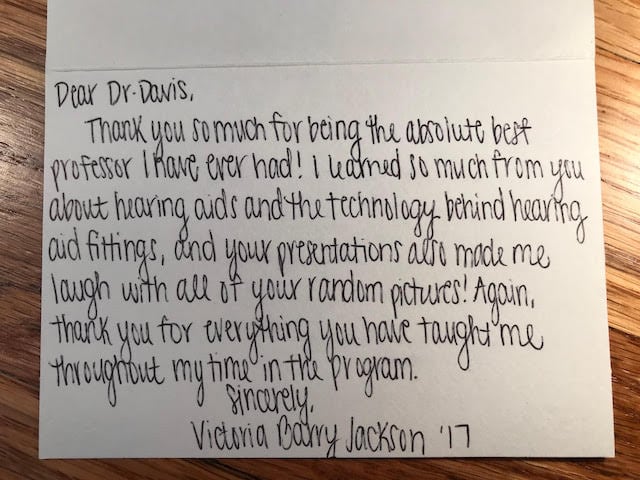 Dear Dr. Davis,
Thank you so much for being the absolute best
professor I have ever had! I learned so much from you
about hearing aids and the technology behind hearing
aid fittings, and your presentations also made me
laugh with all of your random pictures! Again,
thank you for everything you have taught me
throughout my time in the program.
Sincerely,
Victoria Barry Jackson '17